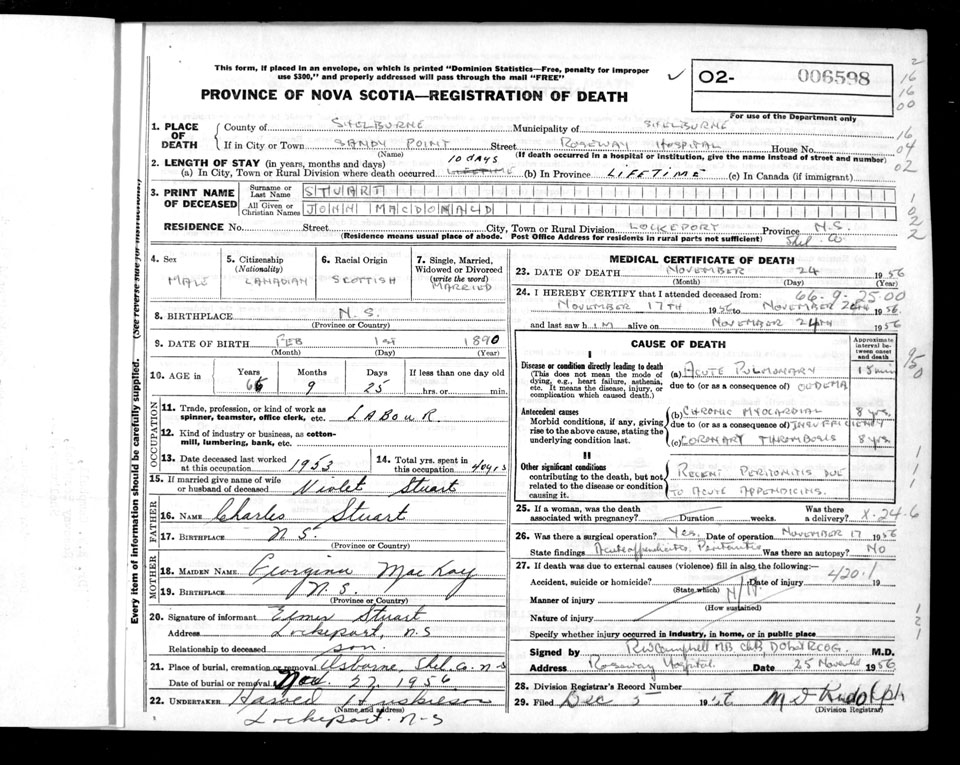 This form, if placed in an envelope, on which is printed "Dominion Statistics—Free, penalty for improper
use $300," and properly addressed will pass through the mail "FREE"
PROVINCE OF NOVA SCOTIA—REGISTRATION OF DEATH
O2- 006598
For use of the Department only
1. PLACE OF DEATH
County of SHELBURNE Municipality of SHELBURNE
If in City or Town SANDY POINT Street ROSEWAY HOSPITAL House No.
(Name) (If death occurred in a hospital or institution, give the name instead of street and number)
2. LENGTH OF STAY (in years, months and days) 10 days
(a) In City, Town or Rural Division where death occurred LIFETIME (b) In Province LIFETIME (c) In Canada (if immigrant)
3. PRINT NAME OF DECEASED
Surname or Last Name STUART
All Given or Christian Names JOHN MACDONALD
RESIDENCE No. Street City, Town or Rural Division LOCKEPORT Province N.S.
(Residence means usual place of abode. Post Office Address for residents in rural parts not sufficient) Shel. Co.
Every item of information should be carefully supplied. (See reverse side for instructions)
4. Sex
MALE
5. Citizenship (Nationality)
CANADIAN
6. Racial Origin
SCOTTISH
7. Single, Married, Widowed or Divorced (write the word)
MARRIED
8. BIRTHPLACE N.S.
(Province or Country)
9. DATE OF BIRTH FEB 1st 1890
(Month) (Day) (Year)
10. AGE in Years Months Days If less than one day old
66 9 25 hrs. or min.
OCCUPATION
11. Trade, profession, or kind of work as spinner, teamster, office clerk, etc. LABOUR
12. Kind of industry or business, as cotton-mill, lumbering, bank, etc.
13. Date deceased last worked at this occupation 1953
14. Total yrs. spent in this occupation 40 yrs
15. If married give name of wife or husband of deceased Violet Stuart
FATHER
16. NAME Charles Stuart
17. BIRTHPLACE N.S.
(Province or Country)
MOTHER
18. MAIDEN NAME Georgina MacKay
19. BIRTHPLACE N.S.
(Province or Country)
20. Signature of informant Elmer Stuart
Address Lockeport, N.S
Relationship to deceased son.
21. Place of burial, cremation or removal Osborne, Shel. Co. N-S
Date of burial or removal Nov. 27, 1956
22. UNDERTAKER Huskilson
(Name and address)
Lockeport. N-S
MEDICAL CERTIFICATE OF DEATH
23. DATE OF DEATH NOVEMBER 24 1956
(Month) (Day) (Year)
66-9-25.00
24. I HEREBY CERTIFY that I attended deceased from:
NOVEMBER 17TH 1956 to NOVEMBER 24TH 1956
and last saw him alive on NOVEMBER 24TH 1956
CAUSE OF DEATH
Approximate interval between onset and death
I
Disease or condition directly leading to death
(This does not mean the mode of dying, e.g., heart failure, asthenia, etc. It means the disease, injury, or complication which caused death.)
(a) ACUTE PULMONARY 15 min
due to (or as a consequence of) OEDEMA
Antecedent causes
Morbid conditions, if any, giving rise to the above cause, stating the underlying condition last.
(b) CHRONIC MYOCARDIAL 8 yrs.
due to (or as a consequence of) INSUFFICIENCY
(c) CORONARY THROMBOSIS 8 yrs
II
Other significant conditions
contributing to the death, but not related to the disease or condition causing it.
RECENT PERITONITIS DUE
TO ACUTE APPENDICITIS.
25. If a woman, was the death associated with pregnancy? Duration weeks. Was there a delivery? X-24-6
26. Was there a surgical operation? Yes. Date of operation NOVEMBER 17 1956
State findings Acute appendicitis, Peritonitis Was there an autopsy? NO
27. If death was due to external causes (violence) fill in also the following:— 420.1
Accident, suicide or homicide? Date of injury 19
(State which)
Manner of injury N/A
(How sustained)
Nature of injury
Specify whether injury occurred in industry, in home, or in public place
Signed by R W Campbell MB ChB DObst RCOG. M.D.
Address Roseway Hospital. Date 25 November 1956
28. Division Registrar's Record Number
29. Filed Dec 5 1956 Rudolph
(Division Registrar)